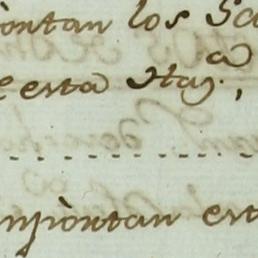 ontan los Sa
e esta Hag.ª;
mpiòntan est